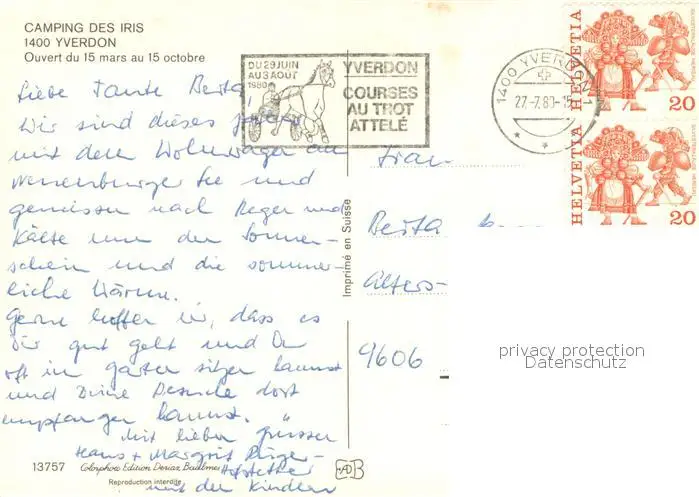 CAMPING DES IRIS
1400 YVERDON
Ouvert du 15 mars au 15 octobre
DU 29 JUIN
AU 3 AOUT
1980
YVERDON
COURSES
AU TROT
ATTELÉ
1400 YVERDON 1
27.-7.80-15
HELVETIA
20
HELVETIA
20
Liebe Tante Berta,
Wir sind dieses Jahr
mit dem Wohnwagen am
Neuenburger See und
geniessen nach Regen und
Kälte nun den Sonnen-
schein und die sommer-
liche Wärme.
Gerne hoffen wir, dass es
Dir gut geht und Du
oft im Garten sitzen kannst
und Deine Besuche dort
empfangen kannst.
Mit lieben Grüssen
Hans + Margrit
Hofstetter
und den Kindern
Frau
Berta
Alters-
9606
Imprimé en Suisse
privacy protection
Datenschutz
13757
Colorphoto Edition Deriaz Baulmes
Reproduction interdite